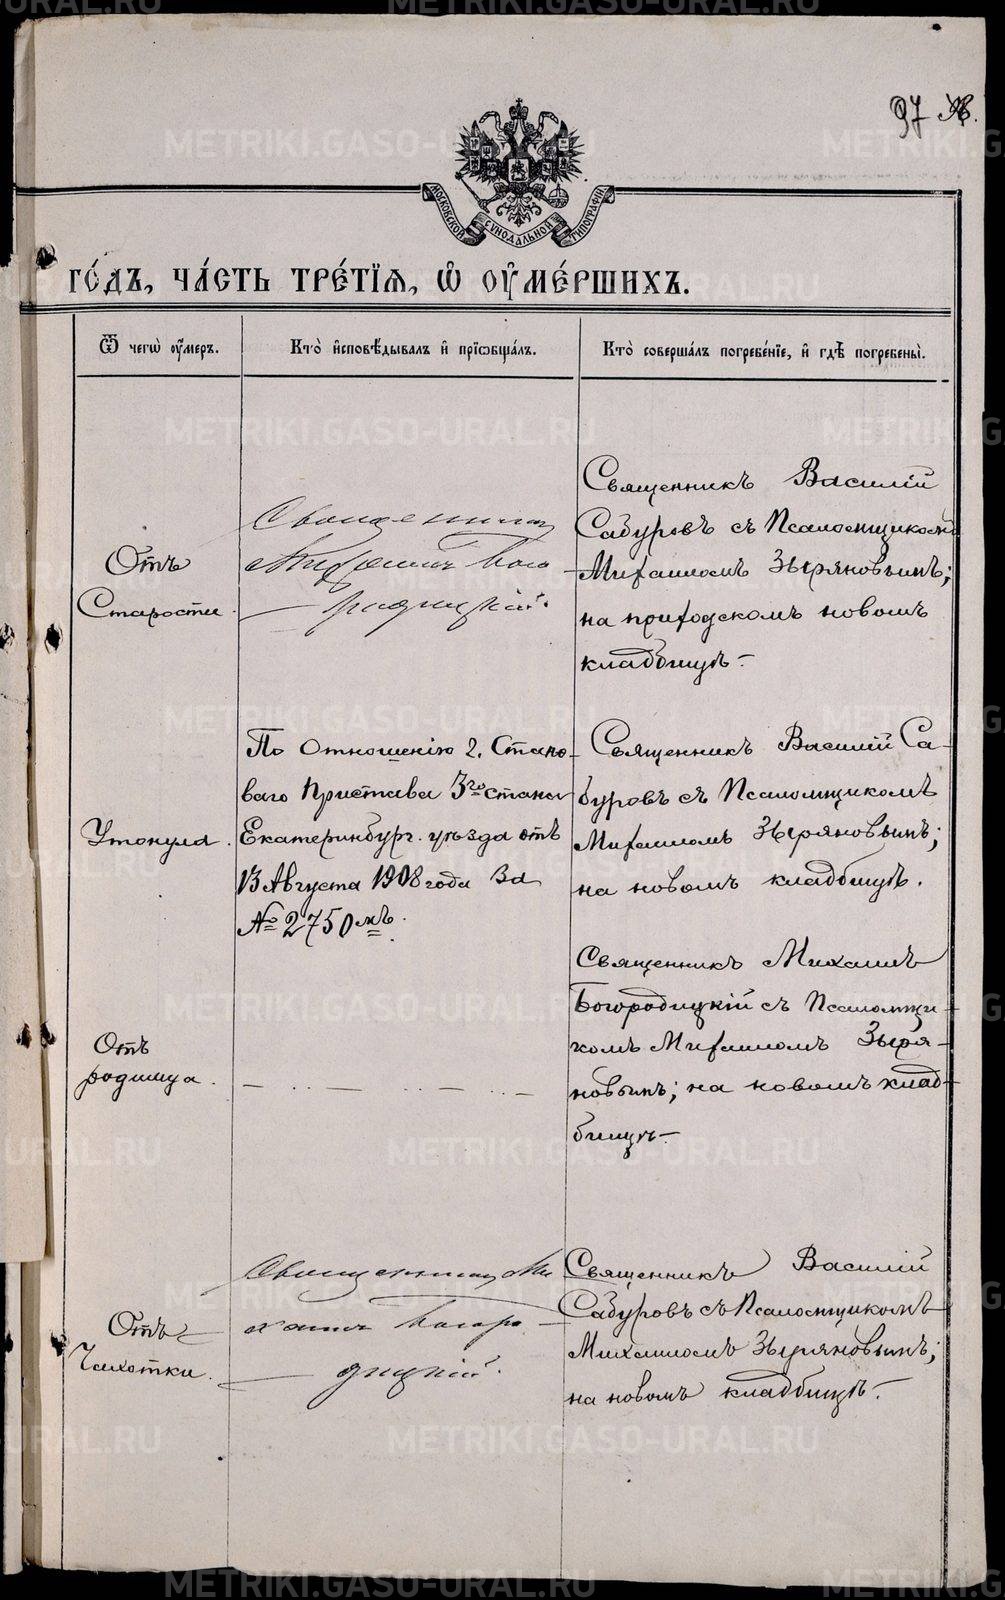 97
МОСКОВСКОЙ СѴНОДАЛЬНОЙ ТИПОГРАФІИ
го́дъ, ча́сть тре́тїѧ, ѡ҆ ᲂу҆ме́ршихъ.
Ѿ чегѡ̀ ᲂу҆́меръ.
Кто̀ и҆сповѣ́дывалъ и҆ прїѡбща́лъ.
Кто̀ соверша́лъ погребе́нїе, и҆ гдѣ̀ погребены̀.
Отъ
Старости.
Священник
Михаилъ Бого-
родицкій.
Священникъ Василій
Сабуровъ съ Псаломщикомъ
Михаиломъ Зыряновымъ;
на приходскомъ новомъ
кладбищѣ.
Утонула.
По отношенію 2. Стано-
ваго Пристава 3го стана
Екатеринбург. уѣзда отъ
13 Августа 1908 года за
№ 2750 мъ.
Священникъ Василій Са-
буровъ съ Псаломщикомъ
Михаиломъ Зыряновымъ;
на новомъ кладбищѣ.
Отъ
родимца.
Священникъ Михаилъ
Богородицкій съ Псаломщи-
комъ Михаиломъ Зыря-
новымъ; на новомъ клад-
бищѣ.
Отъ
Чахотки.
Священник Ми
хаилъ Богоро
дицкій.
Священникъ Василій
Сабуровъ съ Псаломщикомъ
Михаиломъ Зыряновымъ;
на новомъ кладбищѣ.
METRIKI.GASO-URAL.RU